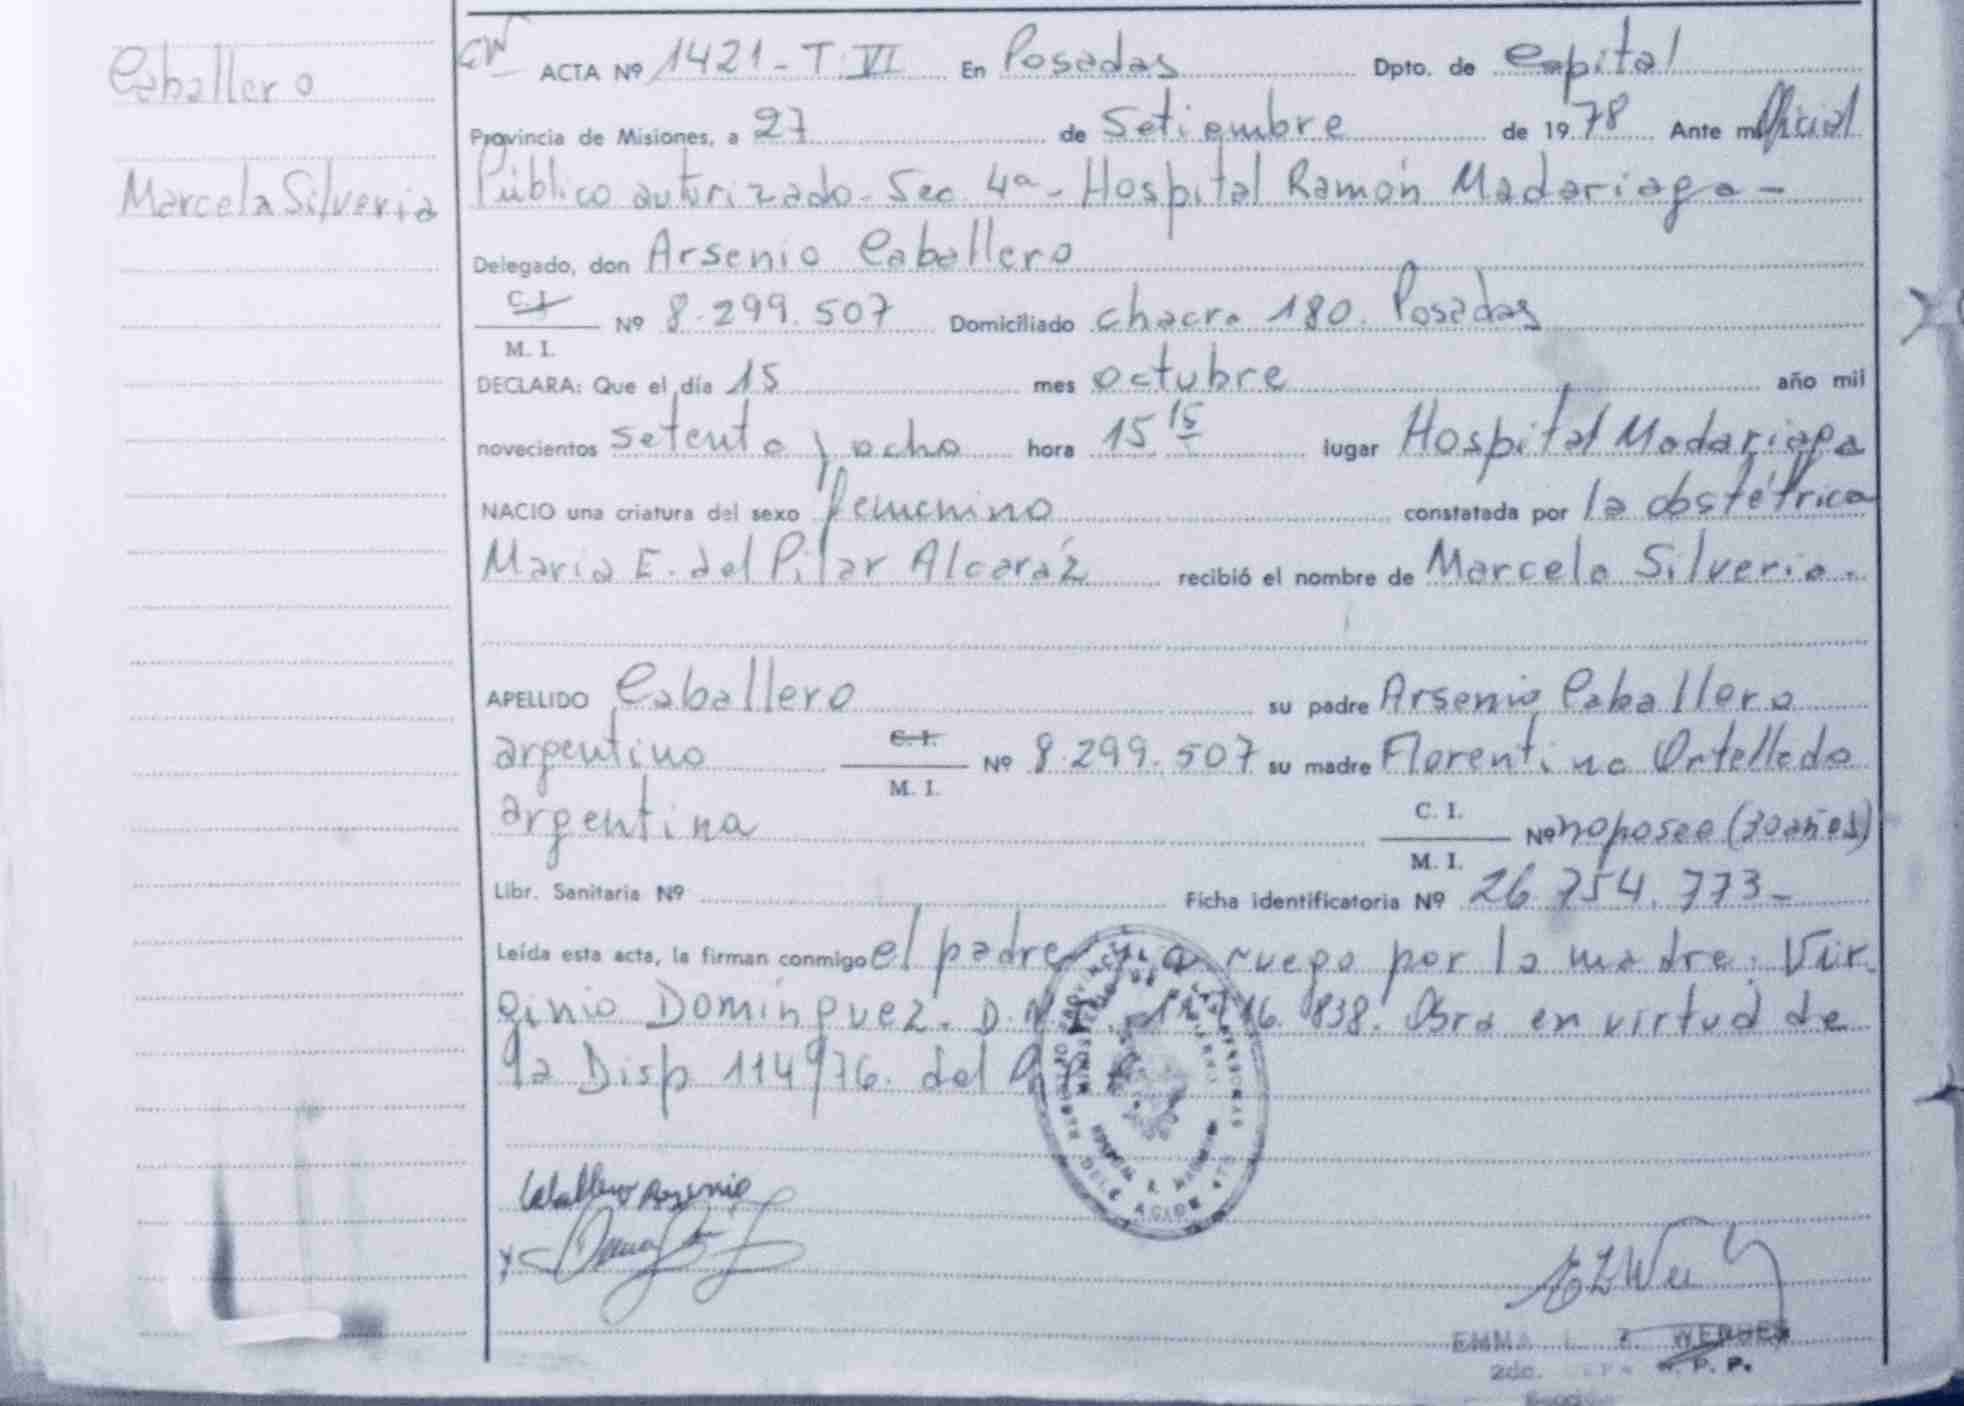 Caballero
Marcela Silveria
ACTA Nº 1421 - T. VI En Posadas Dpto. de Capital
Provincia de Misiones, a 27 de Setiembre de 1978 Ante mi Oficial
Público autorizado - Sec. 4ª - Hospital Ramón Madariaga -
Delegado, don Arsenio Caballero
C. I.
Nº 8.299.507 Domiciliado chacra 180. Posadas
M. I.
DECLARA: Que el día 15 mes octubre año mil
novecientos setenta y ocho hora 15 15 lugar Hospital Madariaga
NACIO una criatura del sexo femenino constatada por la obstétrica
María E. del Pilar Alcaráz recibió el nombre de Marcela Silveria.
APELLIDO Caballero su padre Arsenio Caballero
argentino C. I. Nº 8.299.507 su madre Florentina Ortellado
M. I.
argentina C. I. Nº no posee (30 años)
M. I.
Libr. Sanitaria Nº Ficha identificatoria Nº 26.754.773-
Leída esta acta, la firman conmigo el padre y a ruego por la madre: Vir
ginio Domínguez. D.N. 838. Obra en virtud de
la Disp 114/76. del
Caballero Arsenio
EMMA L. Z. WERUES
2do. P. P.